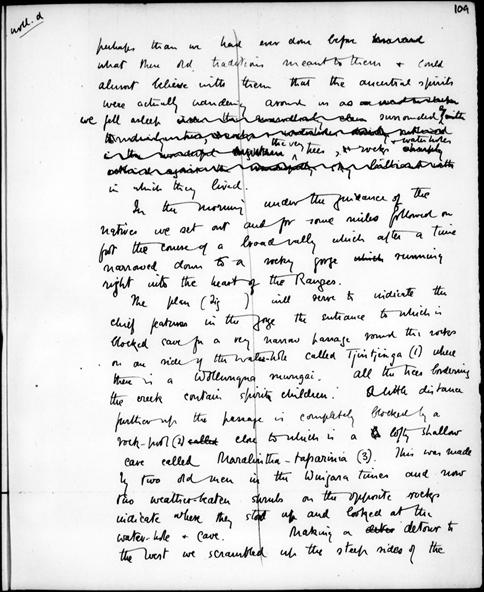 109
woll. d
perhaps than we had ever done before
what these old traditions meant to them & could
almost believe with them that the ancestral spirits
were actually wandering around us as
we fell asleep surrounded by
the very trees, & rocks & water holes
in which they lived.
In the morning under the guidance of the
natives we set out and for some miles followed on
foot the course of a broad vally which after a time
narrowed down to a rocky gorge which running
right into the heart of the Ranges.
The plan (Fig ) will serve to indicate the
chief features in the gorge the entrance to which is
blocked save for a very narrow passage round the rocks
on one side of the water-hole called Tjintjinga (1) where
there is a Wollunqua mungai. All the trees bordering
the creek contain spirit children. A little distance
further up the passage is completely blocked by a
rock-pool (2) called close to which is a lofty shallow
cave called Maralintha-taparinia (3). This was made
by two old men in the Wingara times and now
two weather-beaten shrubs on the opposite rocks
indicate where they stood up and looked at the
water-hole & cave. Making a detour to
the west we scrambled up the steep sides of the